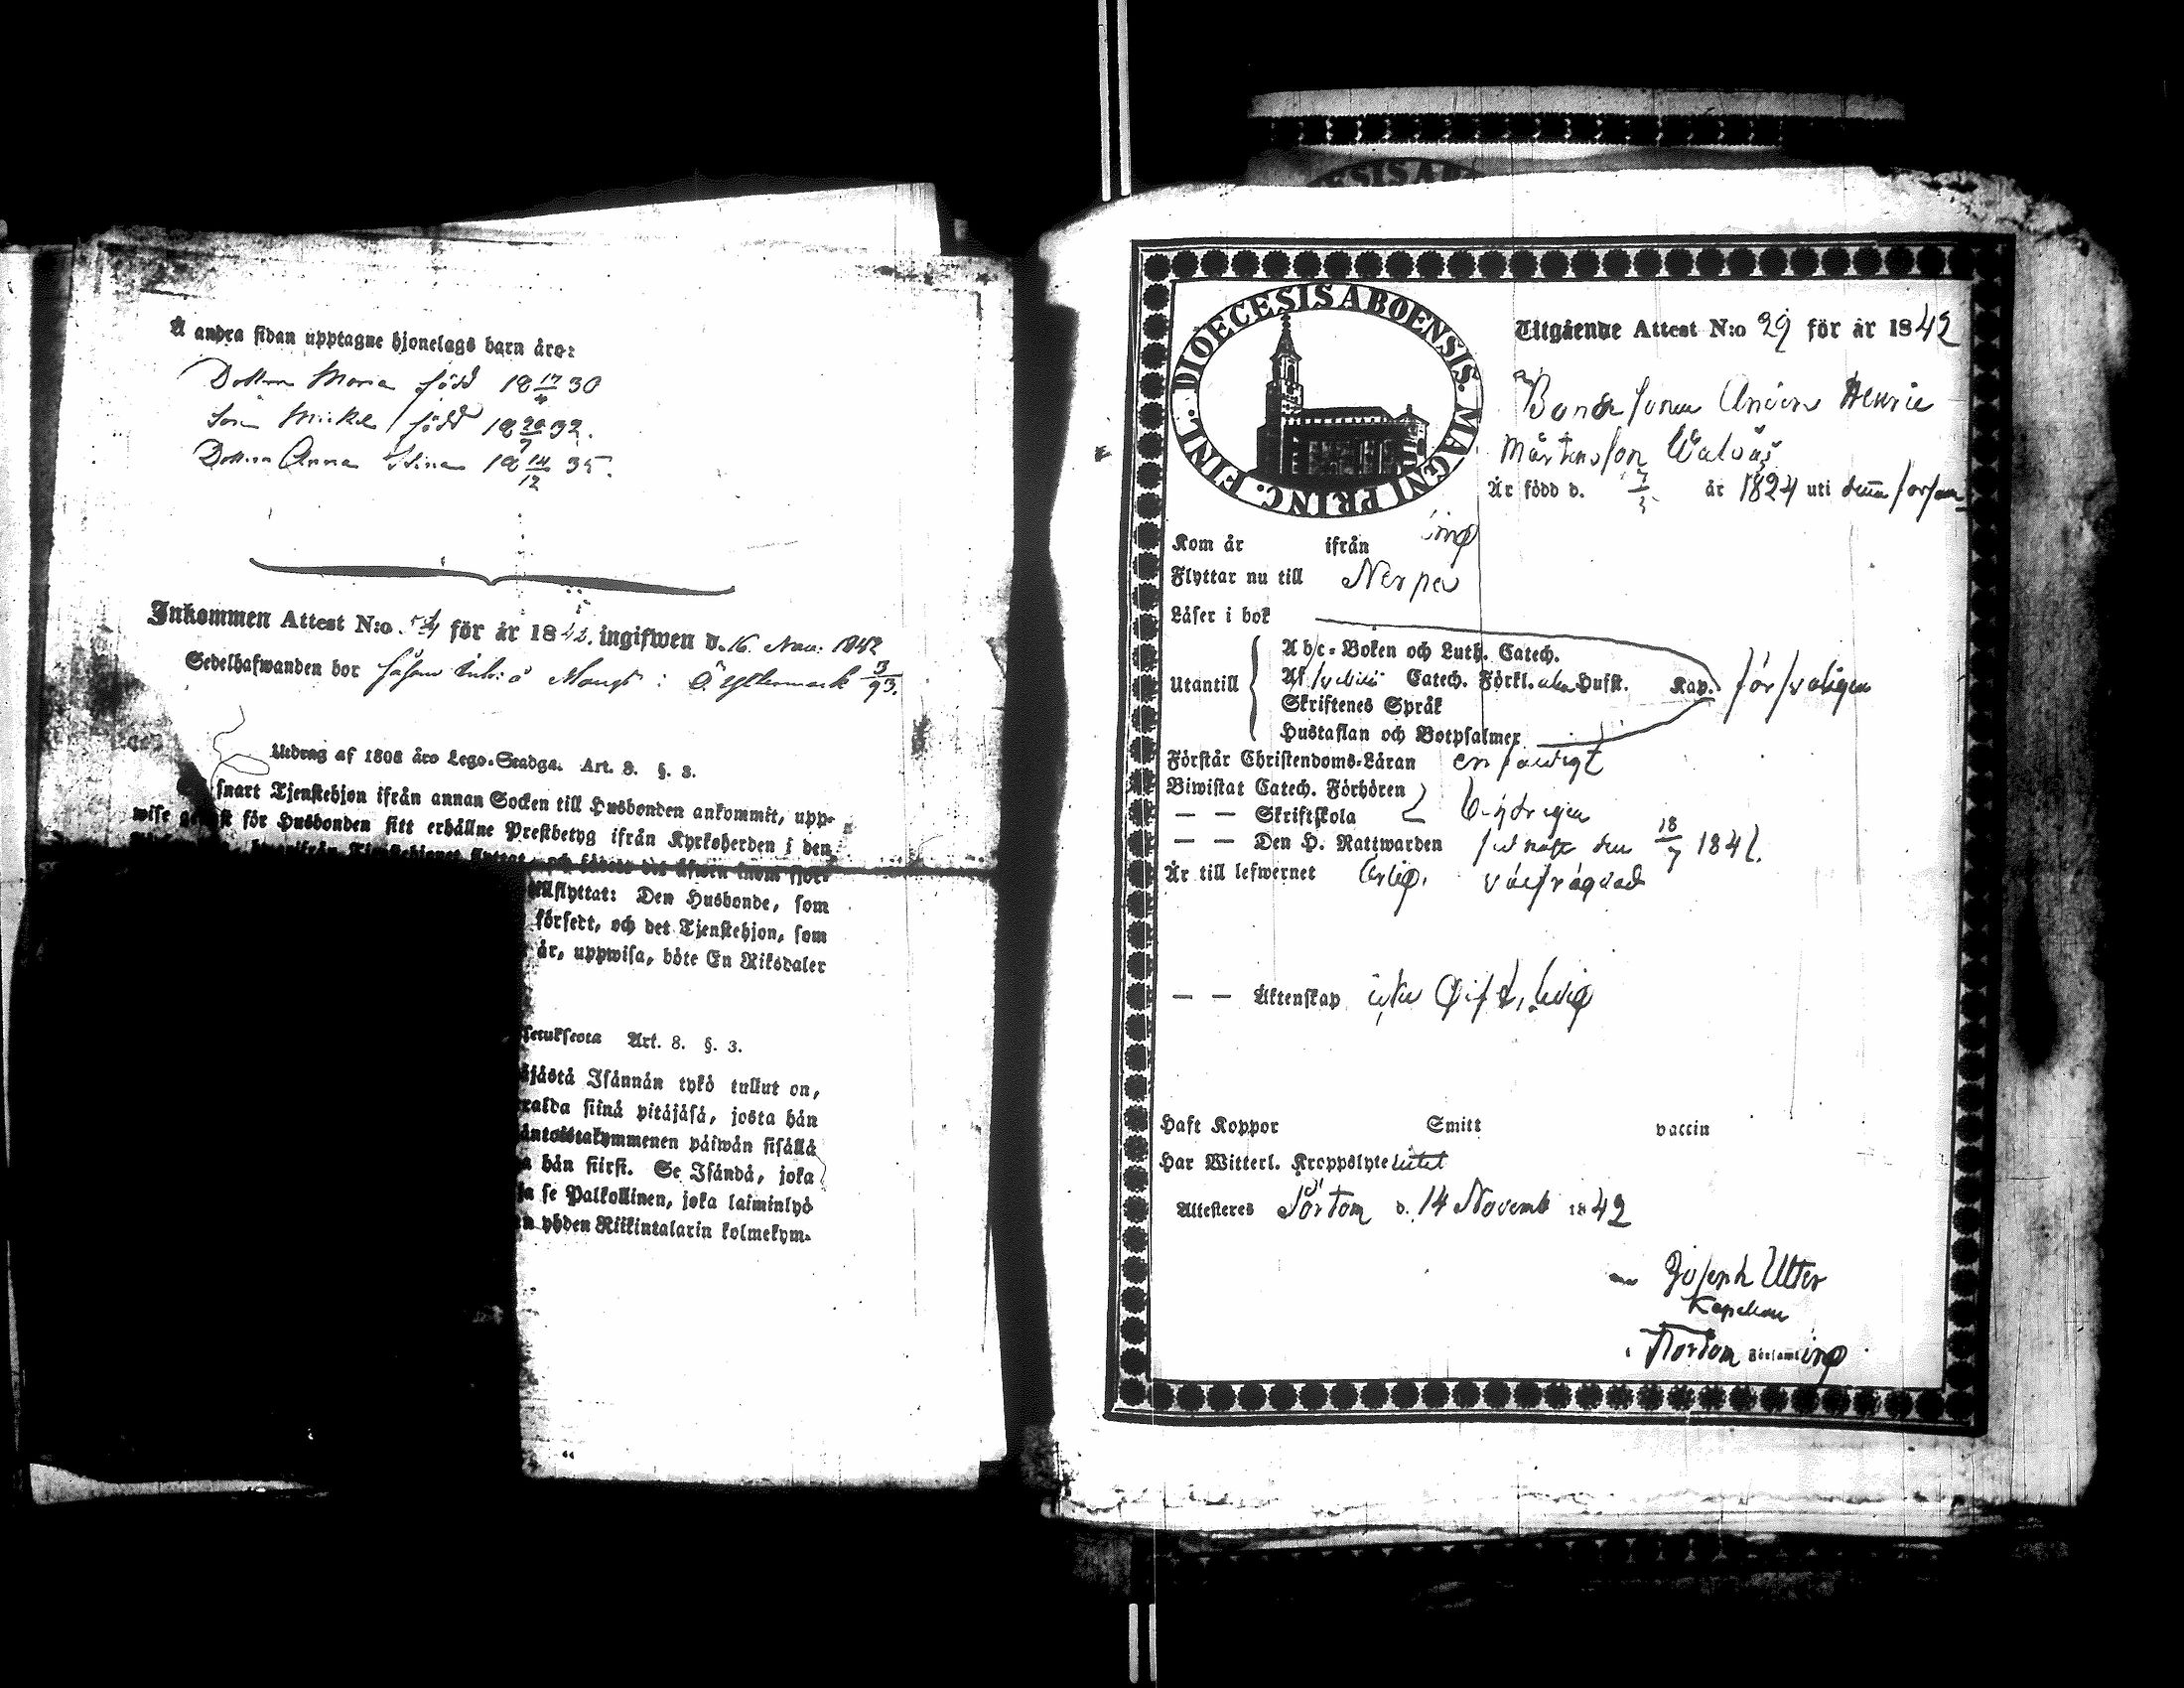 Å andra sidan upptagne hjonelags barn äro:
Dottren Maria född 18 17/4 30
Son Mickel född 18 20/7 32.
Dottren Anna Stina 18 14/12 35.
Inkommen Attest N:o för år 18 42. ingifwen d. 16. Nov. 1842
Sedelhafwanden bor Ö. Yttermark 13/93.
Utdrag af 1805 års Lego-Stadga. Art. 8. §. 3.
snart Tjenstehjon ifrån annan Socken till Husbonden ankommit, upp-
wise för Husbonden sitt erhållne Prestbetyg ifrån Kyrkoherden i den
tillflyttat: Den Husbonde, som
försedt, och det Tjenstehjon, som
år, uppwisa, böte En Riksdaler
setuksesta Art. 8. §. 3.
äjästä Isännän tykö tullut on,
ralda siinä pitäjäsä, josta hän
äntoistakymmenen päiwän sisällä
a hän siirsi. Se Isändä, joka
ja se Palkollinen, joka laiminlyö
n yhden Riikintalarin kolmekym-
DIOECESIS ABOENSIS. MAGNI PRINC. FINL.
Utgående Attest N:o 29 för år 1842
Bonde sonen Anders Henric
Mårtensson Walsås
Är född d. 7/3 år 1824 uti denna försam
ling
Kom år ifrån
Flyttar nu till Nerpes
Läser i bok
Utantill
Abc-Boken och Luth. Catech.
Af Svebilii Catech. Förkl. utan Husst. Kap. försvarligen
Skriftenes Språk
Hustaflan och Botpsalmer
Förstår Christendoms-Läran enfaldigt
Biwistat Catech. Förhören
— — Skriftskola
— — Den H. Nattwarden sednast den 18/7 1842.
Är till lefwernet ärlig, välfrägdad
— — Äktenskap icke Gift, ledig
Haft Koppor Smitt vaccin
Har Witterl. Kroppslyte intet
Attesteres Pörtom d. 14 Novemb 1842
Joseph Utter
Kapellan
i Pörtom Församling